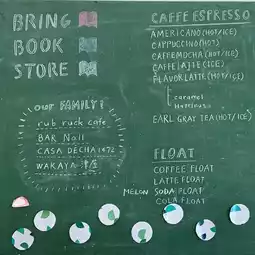 BRING
BOOK
STORE
OUR FAMILY!
rub ruck cafe
BAR Nall
CASA DECHA 1472
WAKAYA 津屋
CAFFE ESPRESSO
AMERICANO (HOT/ICE)
CAPPUCCINO (HOT)
CAFFEMOCHA (HOT/ICE)
CAFFE LATTE (ICE)
FLAVOR LATTE (HOT/ICE)
caramel
Hazelnuts
EARL GRAY TEA (HOT/ICE)
FLOAT
COFFEE FLOAT
LATTE FLOAT
MELON SODA FLOAT
COLA FLOAT